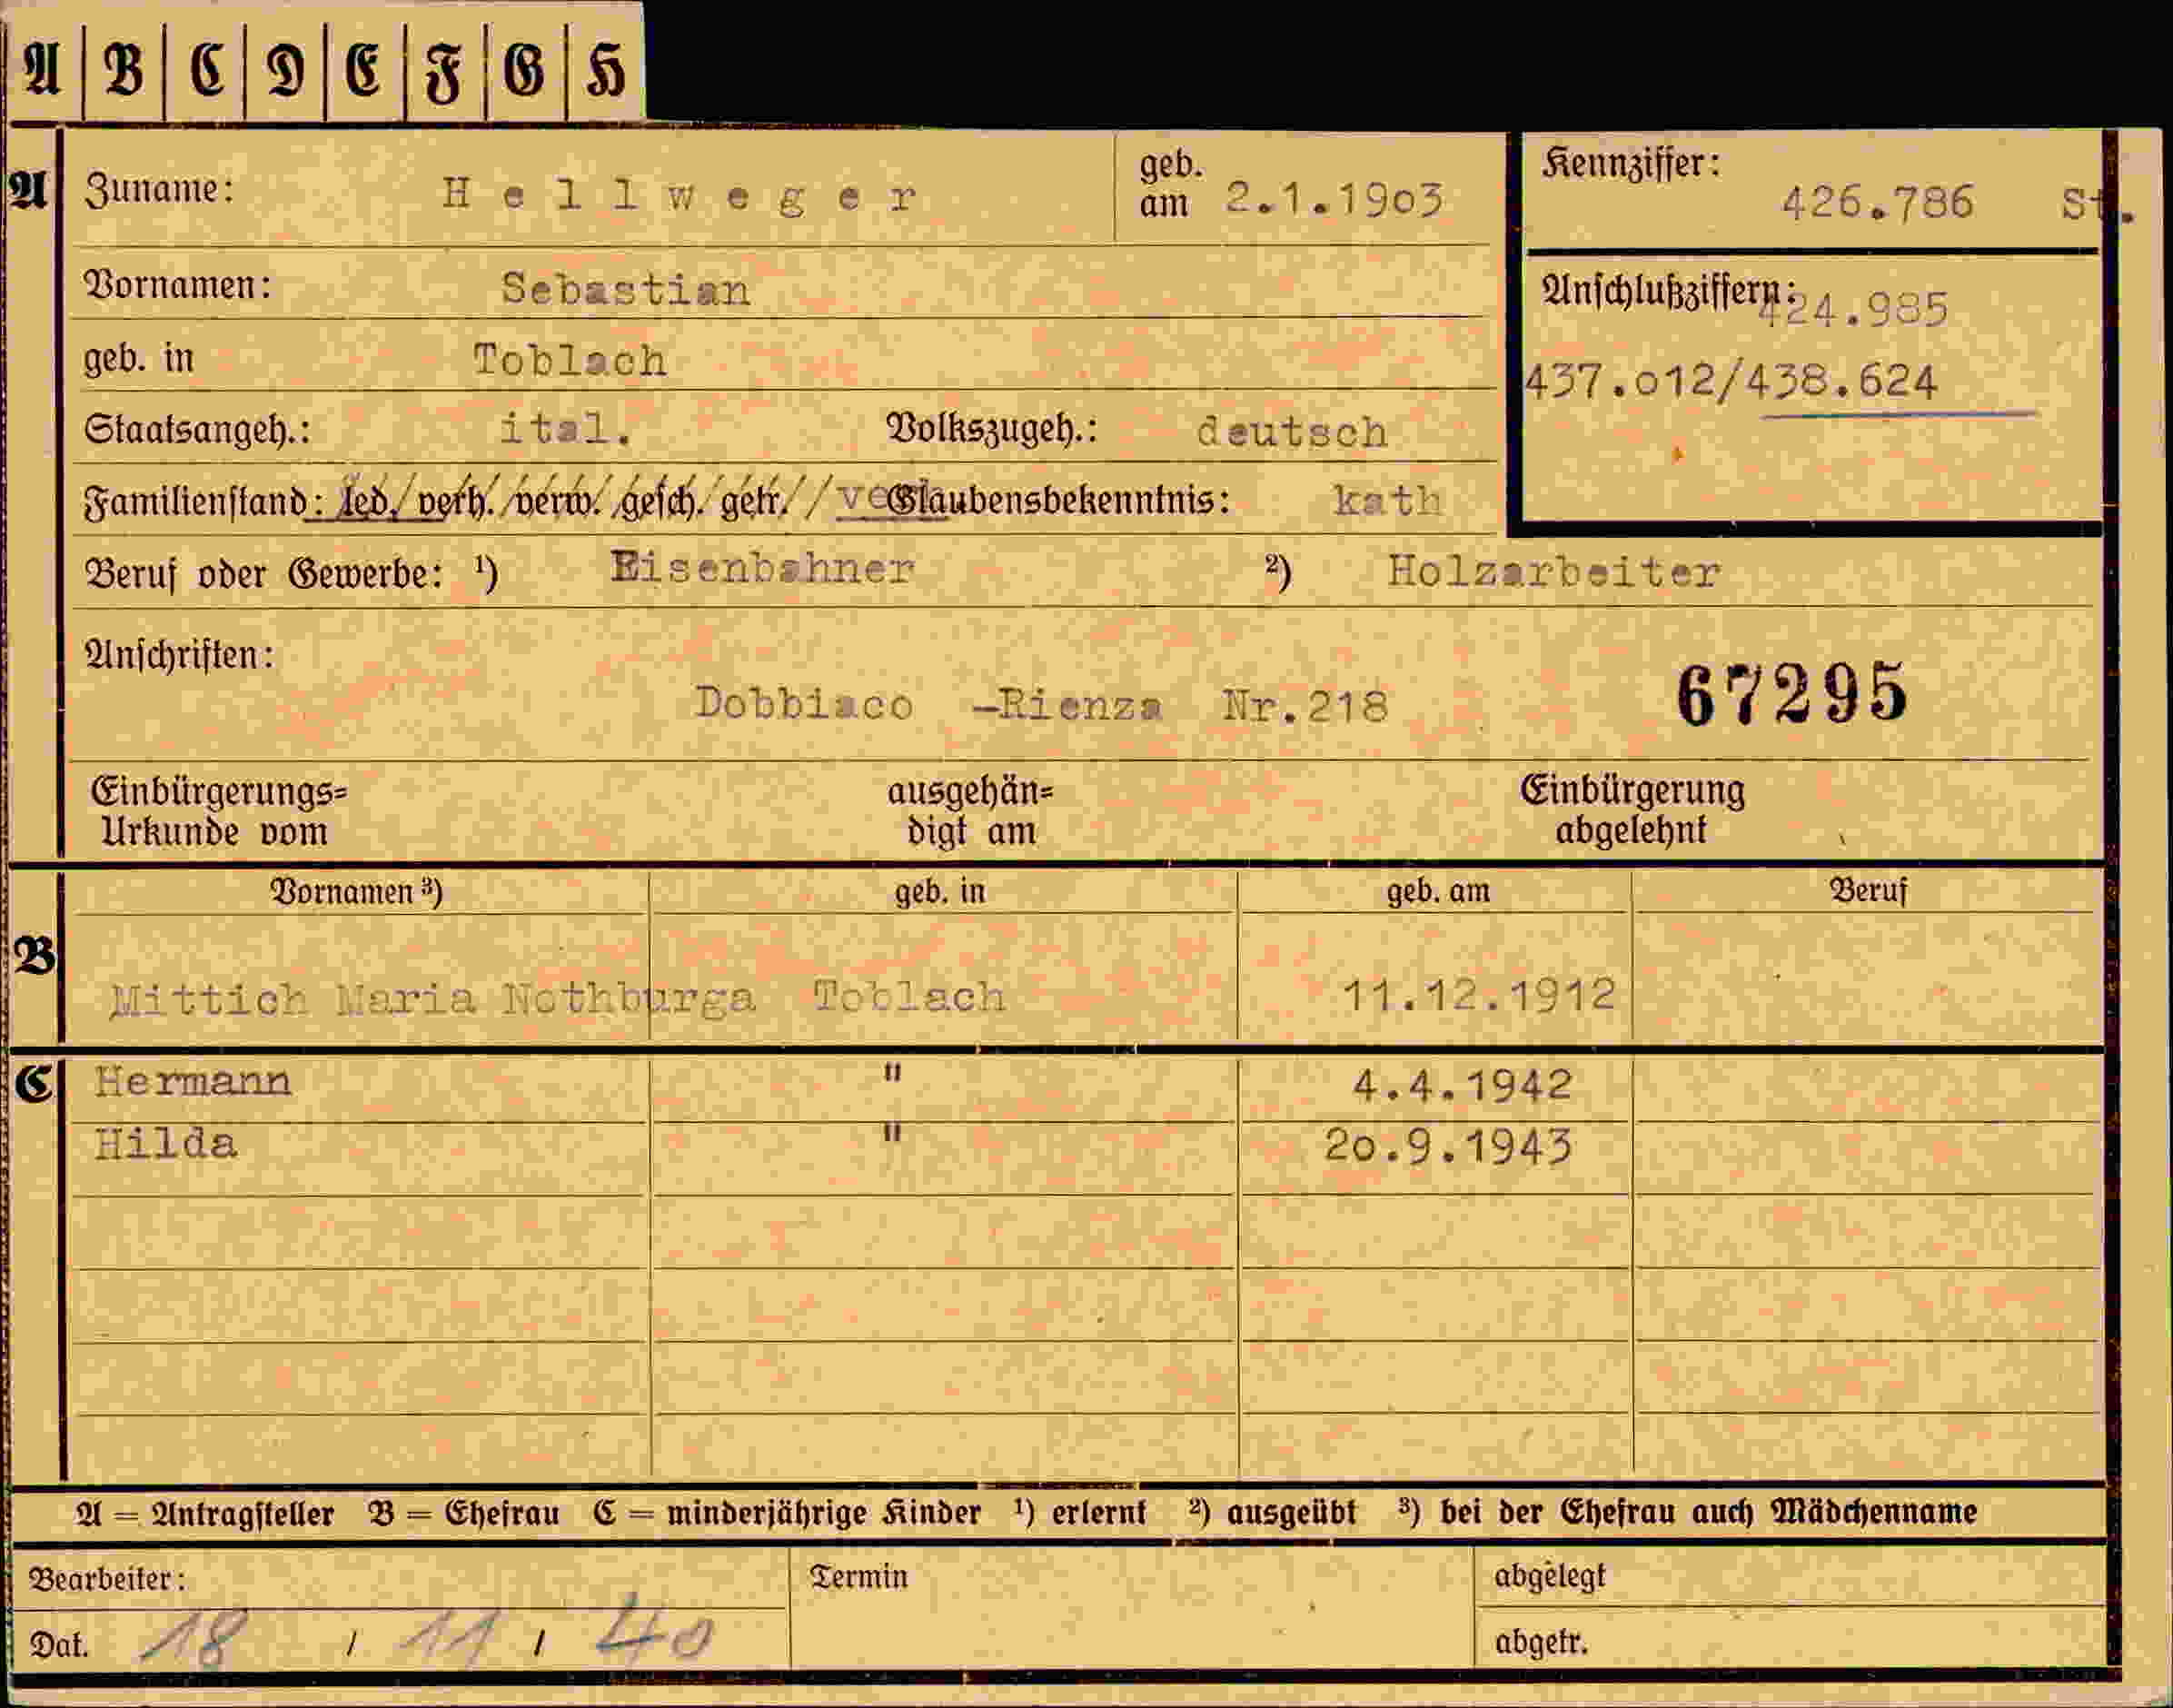 A B C D E F G H
A Zuname: Hellweger geb. am 2.1.1903 Kennziffer: 426.786 St.
Vornamen: Sebastian Anschlußziffern: 424.985
geb. in Toblach 437.012/438.624
Staatsangeh.: ital. Volkszugeh.: deutsch
Familienstand: led./verh./verw./gesch./getr./ Glaubensbekenntnis: kath
Beruf oder Gewerbe: ¹) Eisenbahner ²) Holzarbeiter
Anschriften:
Dobbiaco -Rienza Nr.218 67295
Einbürgerungs= ausgehän= Einbürgerung
Urkunde vom digt am abgelehnt
Vornamen ³) geb. in geb. am Beruf
B Mittich Maria Nothburga Toblach 11.12.1912
C Hermann " 4.4.1942
Hilda " 20.9.1943
A = Antragsteller B = Ehefrau C = minderjährige Kinder ¹) erlernt ²) ausgeübt ³) bei der Ehefrau auch Mädchenname
Bearbeiter: Termin abgelegt
Dat. 18 / 11 / 40 abgetr.